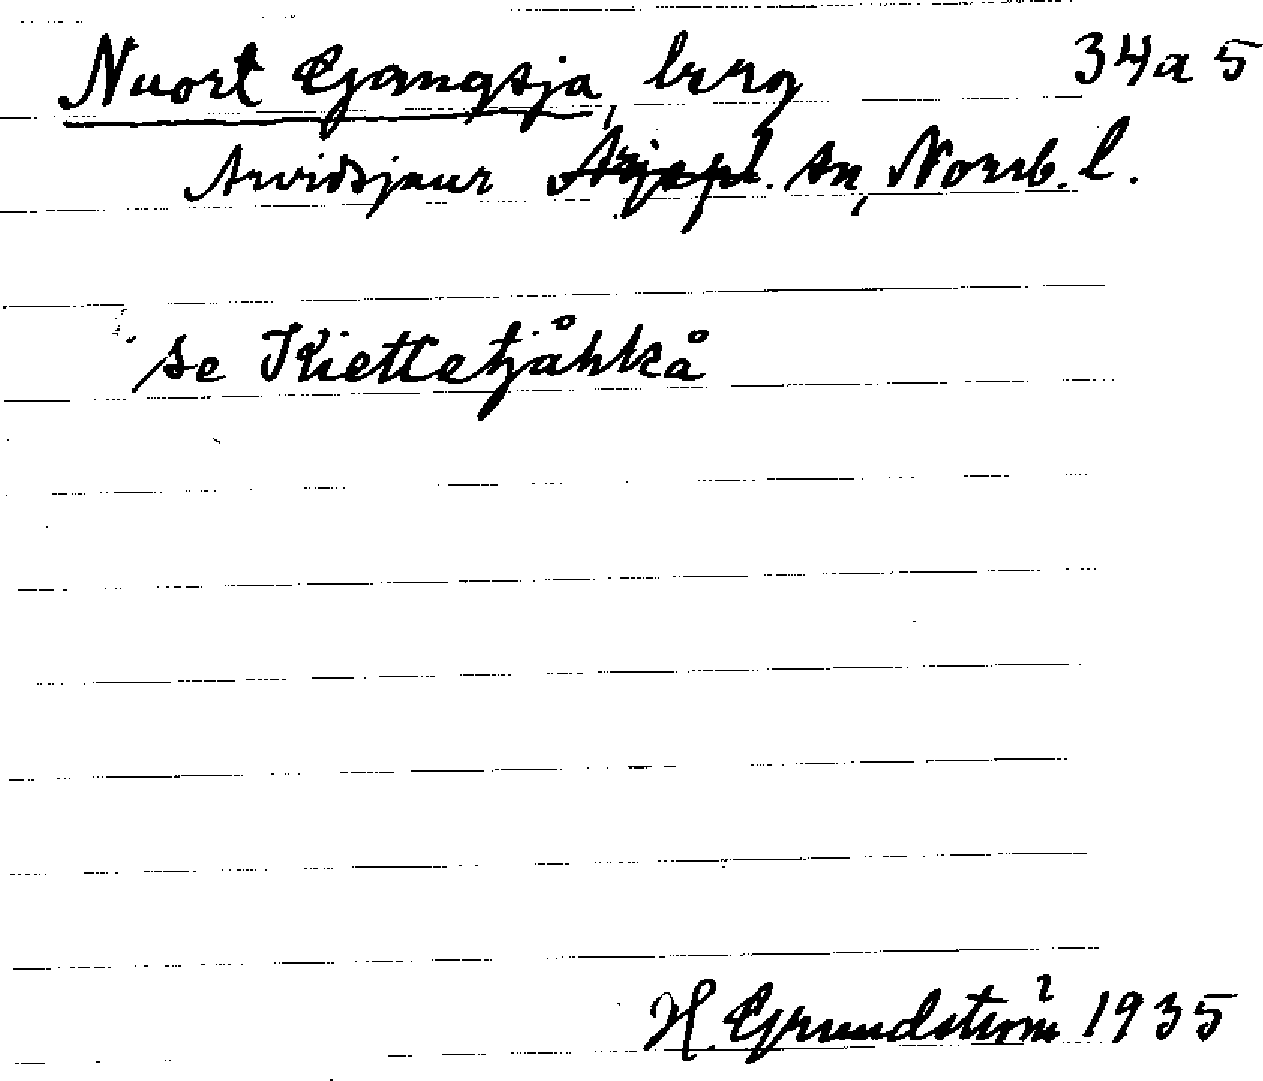 Nuort Gjangsja, berg 34a 5
Arvidsjaur Arjepl. sn, Norrb. l.
se Kiettetjåhkå
H. Grundström 1935